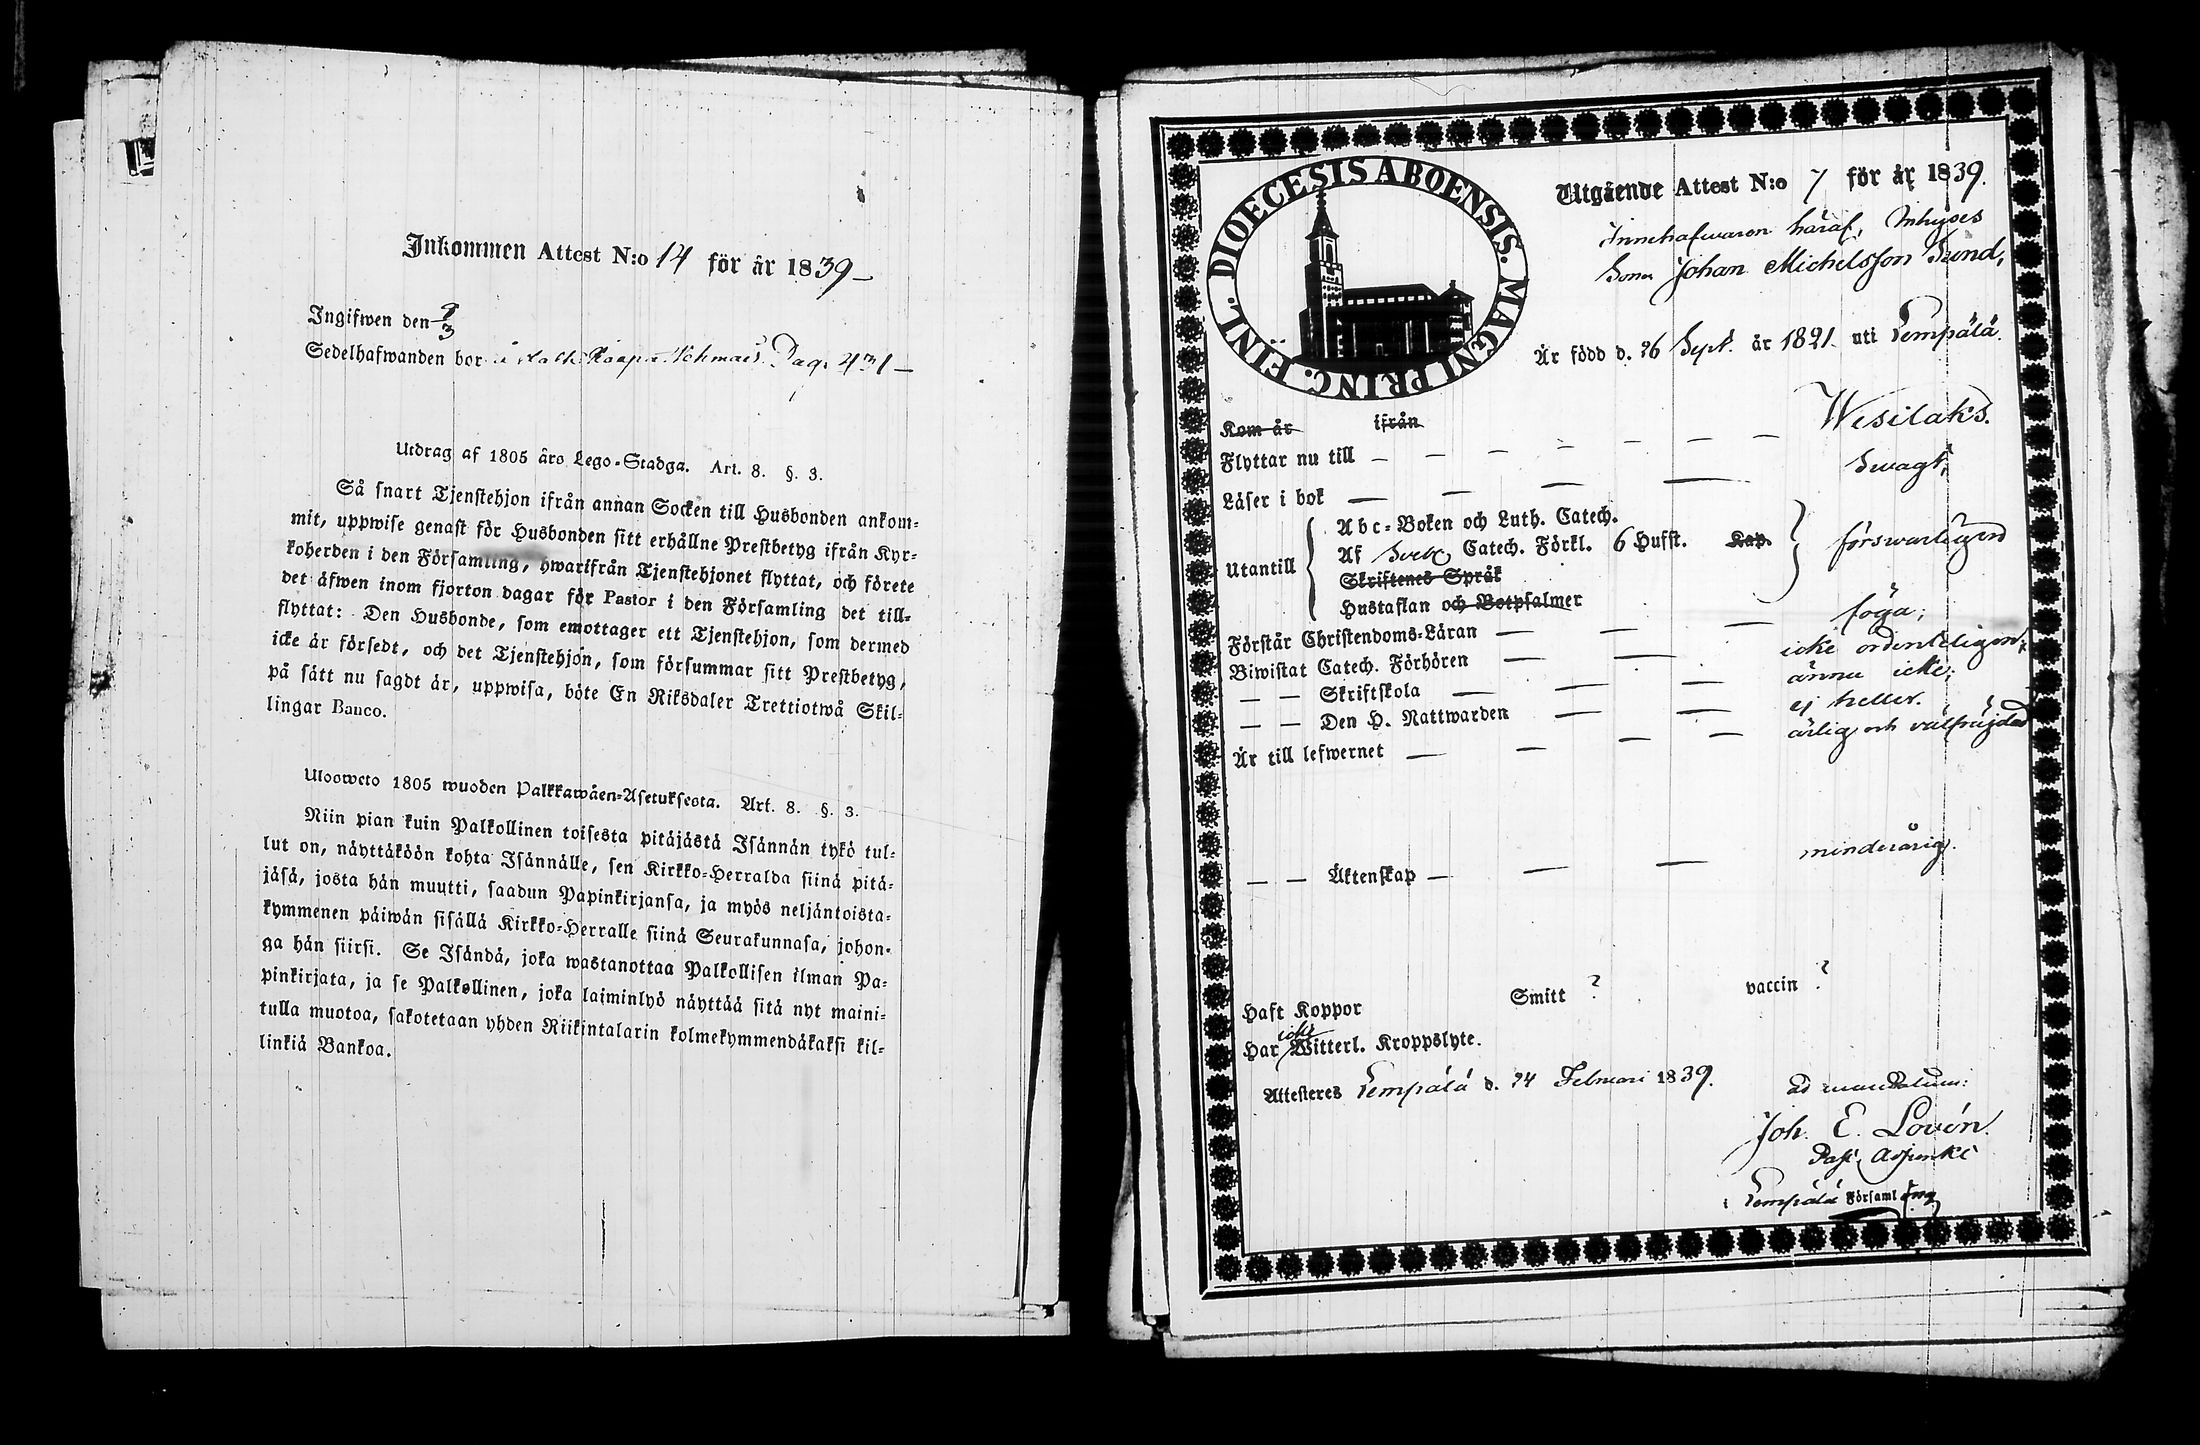 Inkommen Attest N:o 14 för år 1839
Ingifwen den 9/3
Sedelhafwanden bor i Pag. 431
Utdrag af 1805 års Lego-Stadga. Art. 8. §. 3.
Så snart Tjenstehjon ifrån annan Socken till Husbonden ankom-
mit, uppwise genast för Husbonden sitt erhållne Prestbetyg ifrån Kyr-
koherden i den Församling, hwarifrån Tjenstehjonet flyttat, och förete
det äfwen inom fjorton dagar för Pastor i den Församling det till-
flyttat: Den Husbonde, som emottager ett Tjenstehjon, som dermed
icke är försedt, och det Tjenstehjon, som försummar sitt Prestbetyg,
på sätt nu sagdt är, uppwisa, böte En Riksdaler Trettiotwå Skil-
lingar Banco.
Ulosweto 1805 wuoden Palkkawäen-Asetuksesta. Art. 8. §. 3.
Niin pian kuin Palkollinen toisesta pitäjästä Isännän tykö tul-
lut on, näyttäköön kohta Isännälle, sen Kirkko-Herralda siinä pitä-
jäsä, josta hän muutti, saadun Papinkirjansa, ja myös neljäntoista-
kymmenen päiwän sisällä Kirkko-Herralle siinä Seurakunnasa, johon-
ga hän siirsi. Se Isändä, joka wastanottaa Palkollisen ilman Pa-
pinkirjata, ja se Palkollinen, joka laiminlyö näyttää sitä nyt maini-
tulla muotoa, sakotetaan yhden Riikintalarin kolmekymmendäkaksi kil-
linkiä Bankoa.
DIOECESIS ABOENSIS. MAGNI PRINC. FINL.
Utgående Attest N:o 7 för år 1839.
Innehafwaren häraf, Inhyses
Sonen Johan Michelsson Sund,
Är född d. 26 Sept. år 1821 uti Lempälä.
Kom år ifrån
Flyttar nu till Wesilaks.
Läser i bok Swagt,
Utantill
Abc-Boken och Luth. Catech.
Af Sveb. Catech. Förkl. 6 Hufst. Kap. försvarligen
Skriftenes Språk
Hustaflan och Botpsalmer
Förstår Christendoms-Läran föga,
Biwistat Catech. Förhören icke ordenteligen,
— — Skriftskola ännu icke,
— — Den H. Nattwarden ej heller.
Är till lefwernet ärlig och välfräjdad
— — Äktenskap minderårig.
Haft Koppor Smitt ? vaccin ?
Har icke Witterl. Kroppslyte.
Attesteres Lempälä d. 24 Februari 1839.
ad mandatum:
Joh. E. Lovén.
Past. Adjunkt
i Lempälä Församling